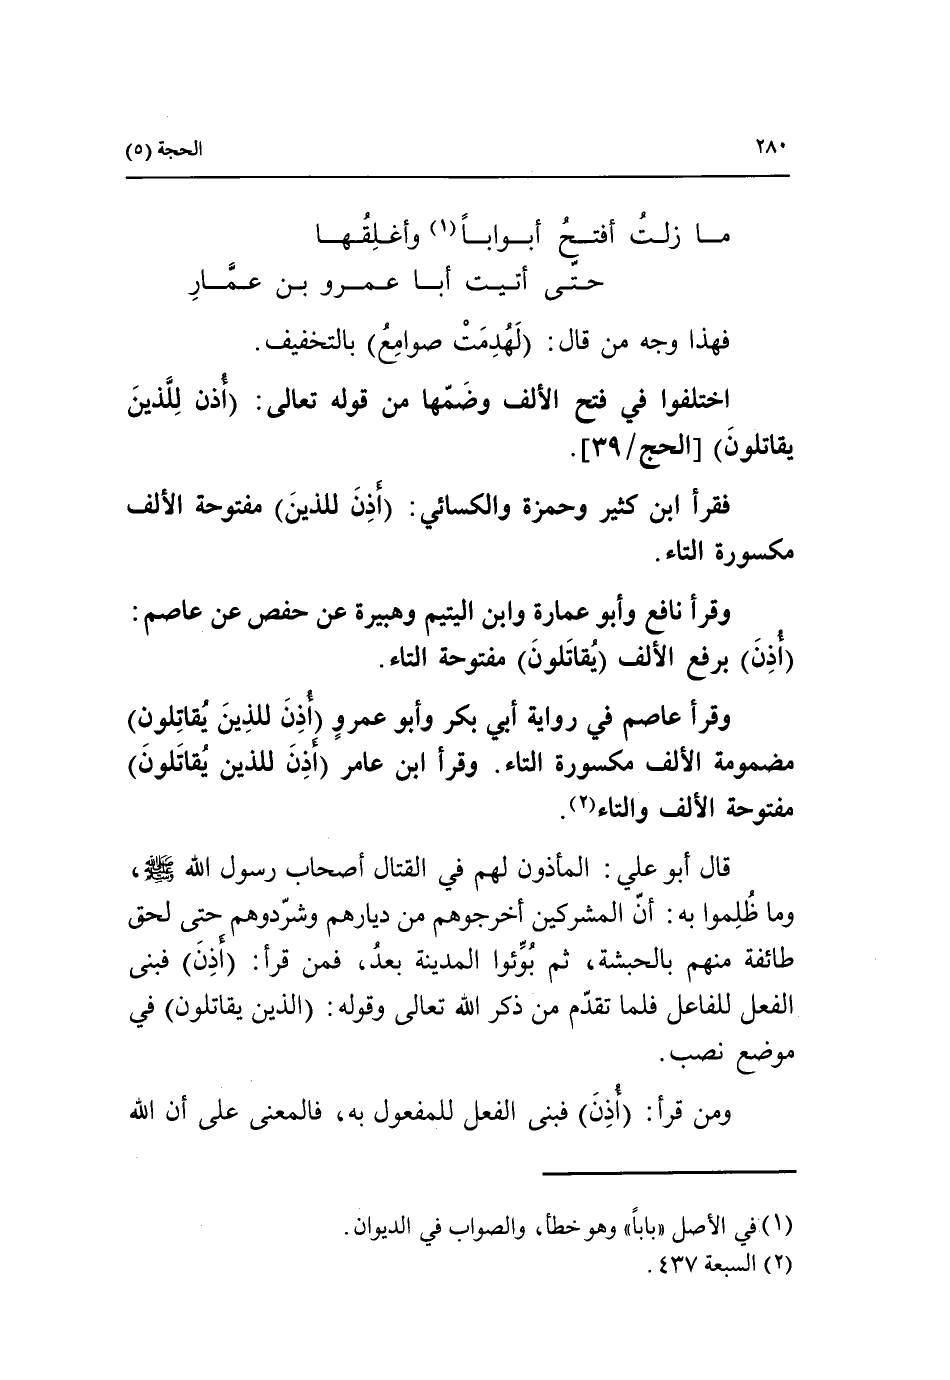 ٢٨٠ الحجة (٥)
مــا زلـتُ أفتــحُ أبــوابــاً(١) وأغـلِقُـهـا
حتّـى أتـيـت أبــا عـمــرو بـن عـمَّــارِ
فهذا وجه من قال: (لَهُدِمَتْ صوامِعُ) بالتخفيف.
اختلفوا في فتح الألف وضَمّها من قوله تعالى: (أُذن لِلَّذينَ
يقاتلونَ) [الحج/٣٩].
فقرأ ابن كثير وحمزة والكسائي: (أَذِنَ للذينَ) مفتوحة الألف
مكسورة التاء.
وقرأ نافع وأبو عمارة وابن اليتيم وهبيرة عن حفص عن عاصم:
(أُذِنَ) برفع الألف (يُقاتَلونَ) مفتوحة التاء.
وقرأ عاصم في رواية أبي بكر وأبو عمروٍ (أُذِنَ للذِينَ يُقاتِلون)
مضمومة الألف مكسورة التاء. وقرأ ابن عامر (أَذِنَ للذين يُقاتَلونَ)
مفتوحة الألف والتاء(٢).
قال أبو علي: المأذون لهم في القتال أصحاب رسول الله ﷺ،
وما ظُلِموا به: أنّ المشركين أخرجوهم من ديارهم وشرّدوهم حتى لحق
طائفة منهم بالحبشة، ثم بُوِّئوا المدينة بعدُ، فمن قرأ: (أَذِنَ) فبنى
الفعل للفاعل فلما تقدّم من ذكر الله تعالى وقوله: (الذين يقاتلون) في
موضع نصب.
ومن قرأ: (أُذِنَ) فبنى الفعل للمفعول به، فالمعنى على أن الله
(١) في الأصل «باباً» وهو خطأ، والصواب في الديوان.
(٢) السبعة ٤٣٧.